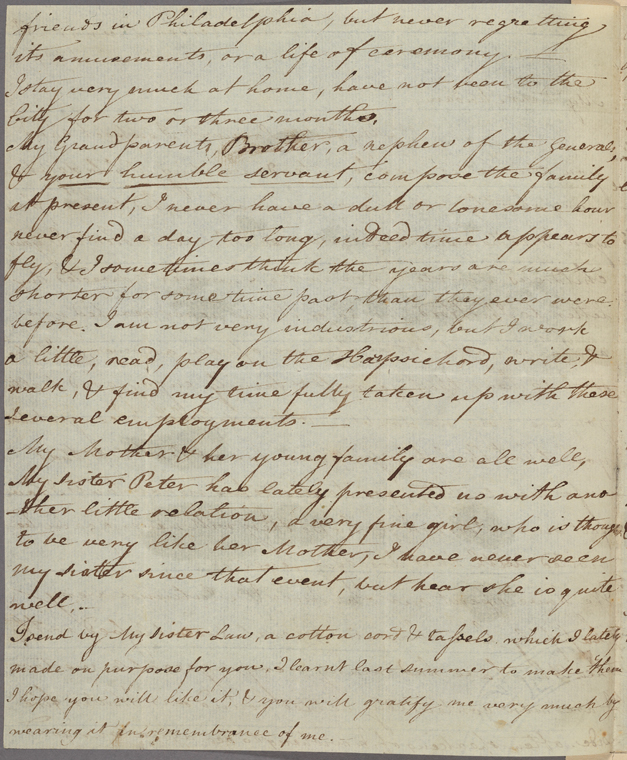 friends in Philadelphia, but never regretting
its amusements, or a life of ceremony. —
I stay very much at home, have not been to the
City for two or three months.
My Grandparents, Brother, a nephew of the General,
& your humble servant, compose the family
at present, I never have a dull or lonesome hour
never find a day too long, indeed time appears to
fly, & I sometimes think the years are much
shorter for some time past than they ever were
before. I am not very industrious, but I work
a little, read, play on the Harpsichord, write, &
walk, & find my time fully taken up with these
several employments. —
My Mother & her young family are all well,
My sister Peter has lately presented us with ano
-ther little relation, a very fine girl, who is though
to be very like her Mother, I have never seen
my sister since that event, but hear she is quite
well. —
I send by My sister Law, a cotton cord & tassels which I lately
made on purpose for you. I learnt last summer to make them
I hope you will like it, & you will gratify me very much by
wearing it in remembrance of me. —